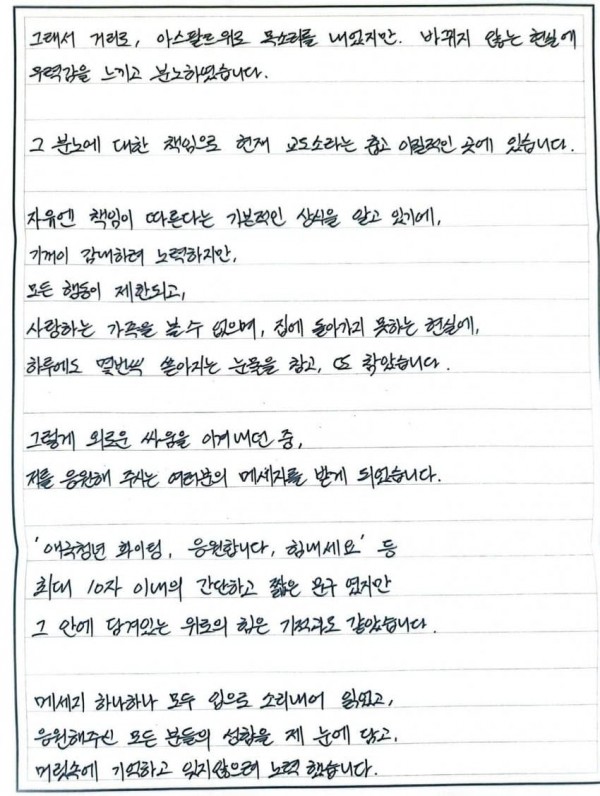 그래서 거리로, 아스팔트위로 목소리를 내었지만. 바뀌지 않는 현실에
무력감을 느끼고 분노하였습니다.
그 분노에 대한 책임으로 현재 교도소라는 춥고 이질적인 곳에 있습니다.
자유엔 책임이 따른다는 기본적인 상식을 알고 있기에,
기꺼이 감내하려 노력하지만,
모든 행동이 제한되고,
사랑하는 가족을 볼 수 없으며, 집에 돌아가지 못하는 현실에,
하루에도 몇번씩 쏟아지는 눈물을 참고, 또 참았습니다.
그렇게 외로운 싸움을 이겨내던 중,
저를 응원해 주시는 여러분의 메세지를 받게 되었습니다.
'애국청년 화이팅, 응원합니다, 힘내세요' 등
최대 10자 이내의 간단하고 짧은 문구 였지만
그 안에 담겨있는 위로의 힘은 기적과도 같았습니다.
메세지 하나하나 모두 입으로 소리내어 읽었고,
응원해주신 모든 분들의 성함을 제 눈에 담고,
머릿속에 기억하고 잊지않으려 노력 했습니다.